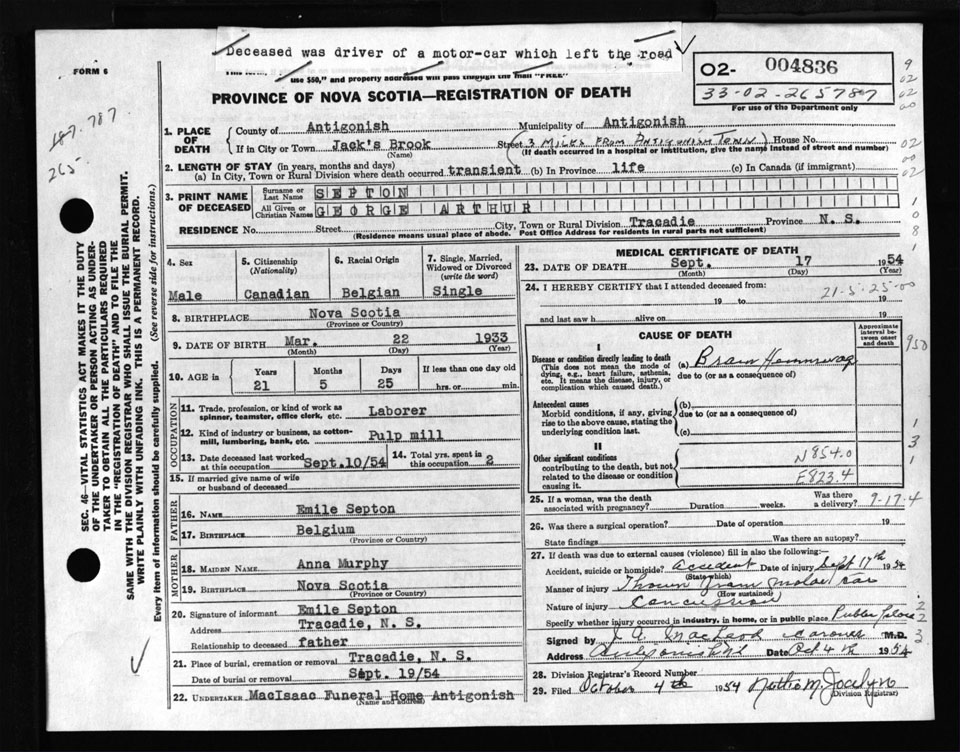 Deceased was driver of a motor-car which left the road
FORM 6
use $50," and property addressed will pass through the mail "FREE"
02- 004836
33-02-265787
For use of the Department only
187.787
265-
PROVINCE OF NOVA SCOTIA—REGISTRATION OF DEATH
1. PLACE OF DEATH
County of Antigonish Municipality of Antigonish
If in City or Town Jack's Brook Street (3 Miles from Antigonish Town) House No.
(Name) (If death occurred in a hospital or institution, give the name instead of street and number)
2. LENGTH OF STAY (in years, months and days)
(a) In City, Town or Rural Division where death occurred transient (b) In Province life (c) In Canada (if immigrant)
3. PRINT NAME OF DECEASED
Surname or Last Name SEPTON
All Given or Christian Names GEORGE ARTHUR
RESIDENCE No. Street City, Town or Rural Division Tracadie Province N. S.
(Residence means usual place of abode. Post Office Address for residents in rural parts not sufficient)
4. Sex
Male
5. Citizenship (Nationality)
Canadian
6. Racial Origin
Belgian
7. Single, Married, Widowed or Divorced (write the word)
Single
8. BIRTHPLACE Nova Scotia
(Province or Country)
9. DATE OF BIRTH Mar. 22 1933
(Month) (Day) (Year)
10. AGE in Years Months Days If less than one day old
21 5 25 hrs. or min.
OCCUPATION
11. Trade, profession, or kind of work as spinner, teamster, office clerk, etc. Laborer
12. Kind of industry or business, as cotton-mill, lumbering, bank, etc. Pulp mill
13. Date deceased last worked at this occupation Sept.10/54
14. Total yrs. spent in this occupation 2
15. If married give name of wife or husband of deceased
FATHER
16. NAME Emile Septon
17. BIRTHPLACE Belgium
(Province or Country)
MOTHER
18. MAIDEN NAME Anna Murphy
19. BIRTHPLACE Nova Scotia
(Province or Country)
20. Signature of informant Emile Septon
Address Tracadie, N. S.
Relationship to deceased father
21. Place of burial, cremation or removal Tracadie, N. S.
Date of burial or removal Sept. 19/54
22. UNDERTAKER MacIsaac Funeral Home Antigonish
(Name and address)
MEDICAL CERTIFICATE OF DEATH
23. DATE OF DEATH Sept. 17 1954
(Month) (Day) (Year)
24. I HEREBY CERTIFY that I attended deceased from:
19 to 19
21-5-25-00
and last saw h alive on 19
CAUSE OF DEATH
Approximate interval between onset and death
I
Disease or condition directly leading to death
(This does not mean the mode of dying, e.g., heart failure, asthenia, etc. It means the disease, injury, or complication which caused death.)
(a) Brain Hemmorage
due to (or as a consequence of)
Antecedent causes
Morbid conditions, if any, giving rise to the above cause, stating the underlying condition last.
(b)
due to (or as a consequence of)
(c)
II
Other significant conditions
contributing to the death, but not related to the disease or condition causing it.
N854.0
E823.4
25. If a woman, was the death associated with pregnancy? Duration weeks. Was there a delivery?
9-17-4
26. Was there a surgical operation? Date of operation 19
State findings Was there an autopsy?
27. If death was due to external causes (violence) fill in also the following:
Accident, suicide or homicide? Accident Date of injury Sept 17th 1954
(State which)
Manner of injury Thrown from motor car
(How sustained)
Nature of injury Concussion
Specify whether injury occurred in industry, in home, or in public place Public place
Signed by J. A. MacLeod Coroner M.D.
Address Antigonish NS Date Oct 4th 1954
28. Division Registrar's Record Number
29. Filed October 4th 1954 Nettie M. Jocelyn
(Division Registrar)
SEC. 46—VITAL STATISTICS ACT MAKES IT THE DUTY
OF THE UNDERTAKER OR PERSON ACTING AS UNDER-
TAKER TO OBTAIN ALL THE PARTICULARS REQUIRED
IN THE "REGISTRATION OF DEATH" AND TO FILE THE
SAME WITH THE DIVISION REGISTRAR WHO SHALL ISSUE THE BURIAL PERMIT.
WRITE PLAINLY WITH UNFADING INK. THIS IS A PERMANENT RECORD.
Every item of information should be carefully supplied. (See reverse side for instructions.)
9
02
02
00
02
00
02
1
0
8
1
950
1
3
1
2
2
3